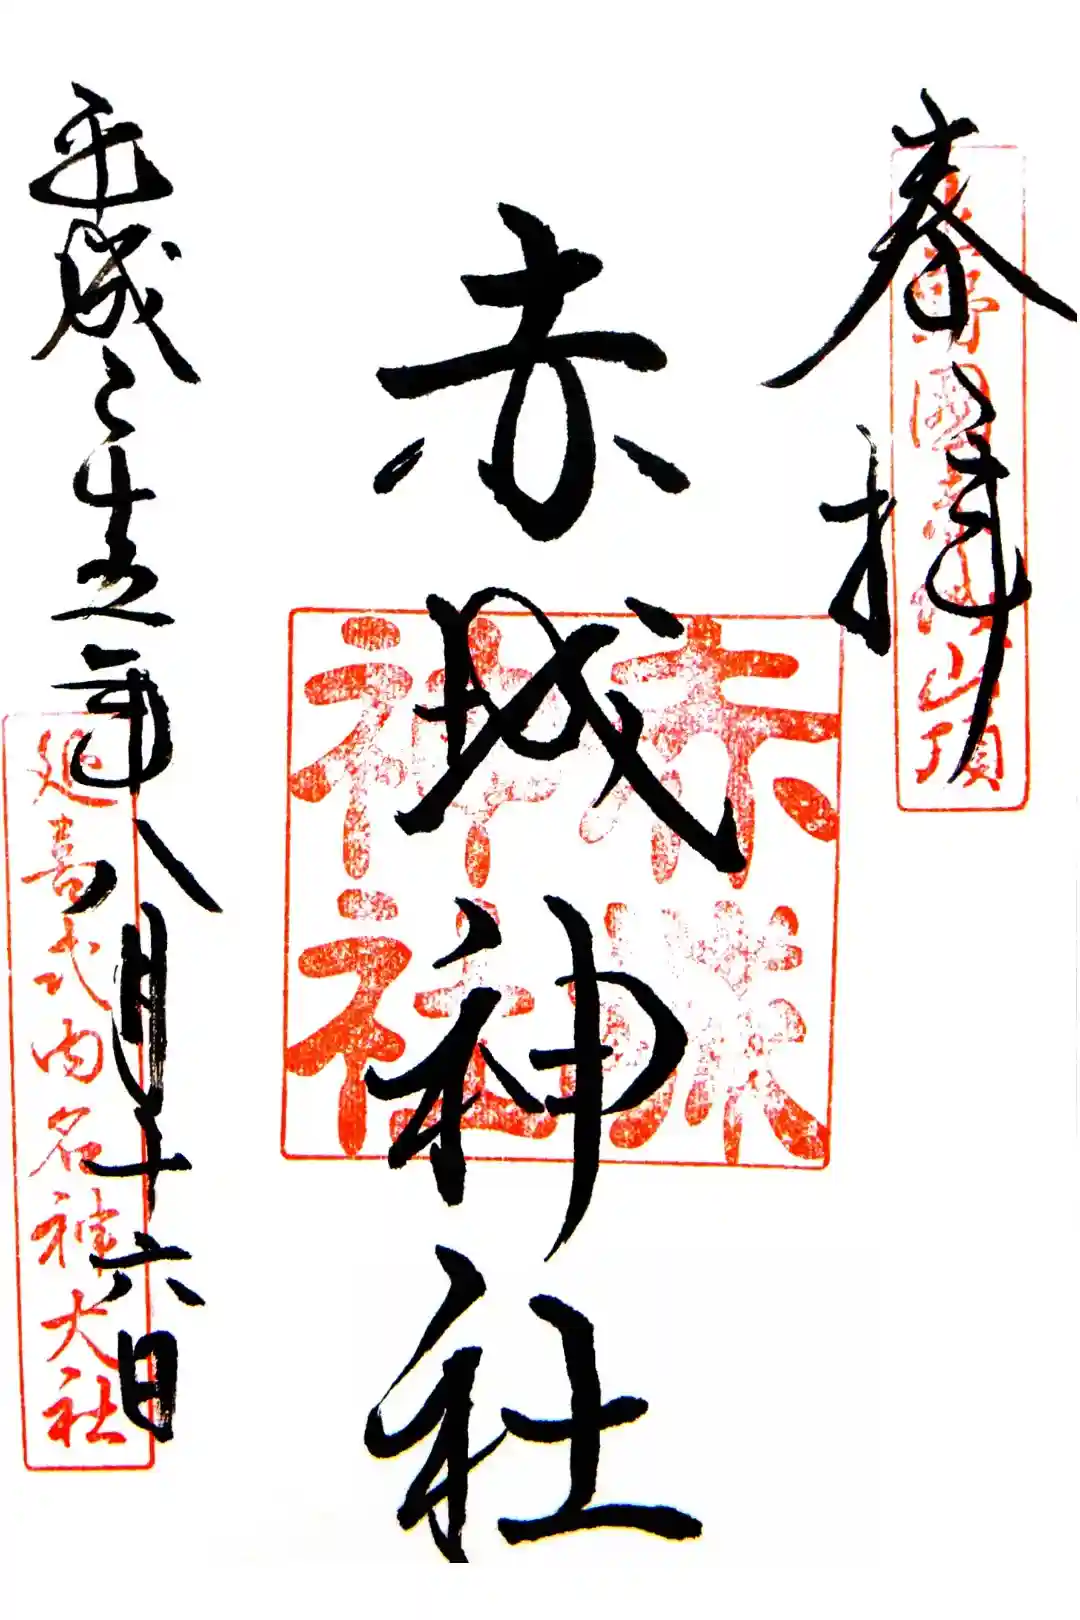 奉拝
上野國赤城山頂
赤城神社
赤城
神社
平成二十五年八月十六日
延喜式内名神大社